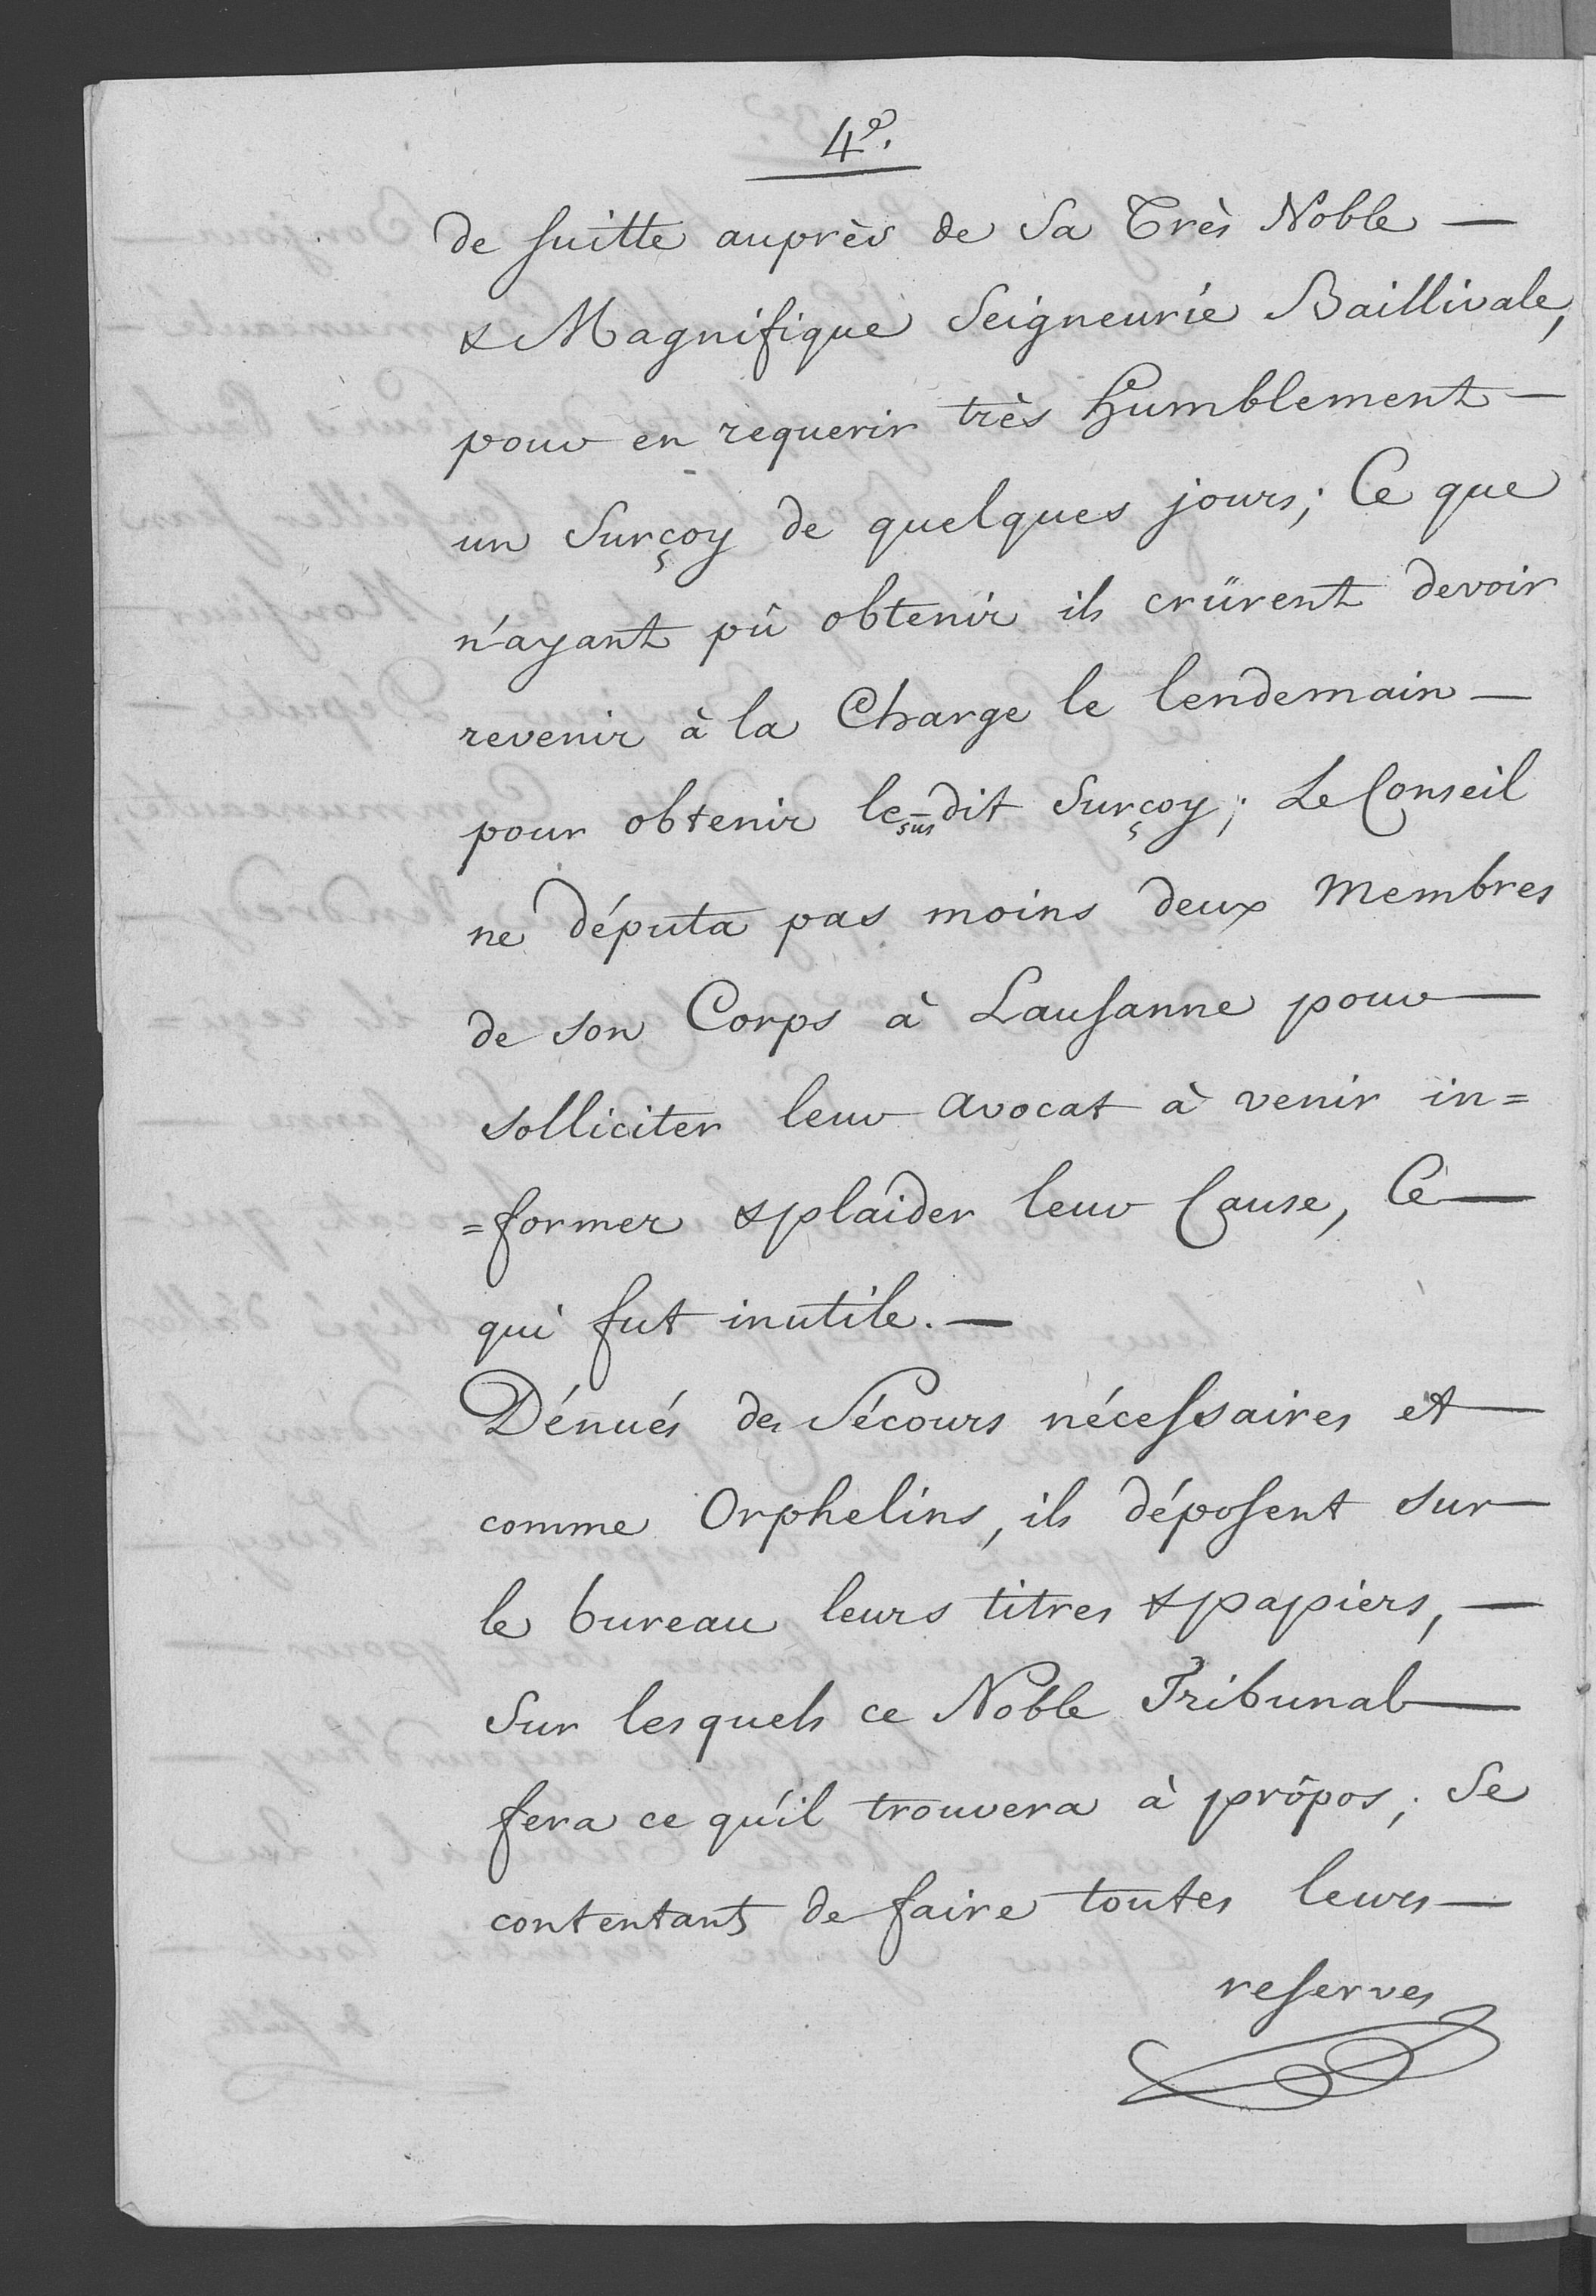 4e.
de suitte auprès de Sa Très Noble —
& Magnifique Seigneurie Baillivale,
pour en requerir très humblement —
un Surçoy de quelques jours; Ce que
n'ayant pû obtenir ils crürent devoir
revenir à la Charge le lendemain —
pour obtenir le susdit Surçoy; Le Conseil
ne députa pas moins deux Membres
de son Corps à Lausanne pour —
solliciter leur avocat à venir in=
=former & plaider leur Cause, Ce —
qui fut inutile. —
Dénués de Sécours nécessaires et —
comme Orphelins, ils déposent sur —
le bureau leurs titres & papiers, —
Sur lesquels ce Noble Tribunal —
fera ce qu'il trouvera à prôpos; Se
contentants de faire toutes leurs —
reserves